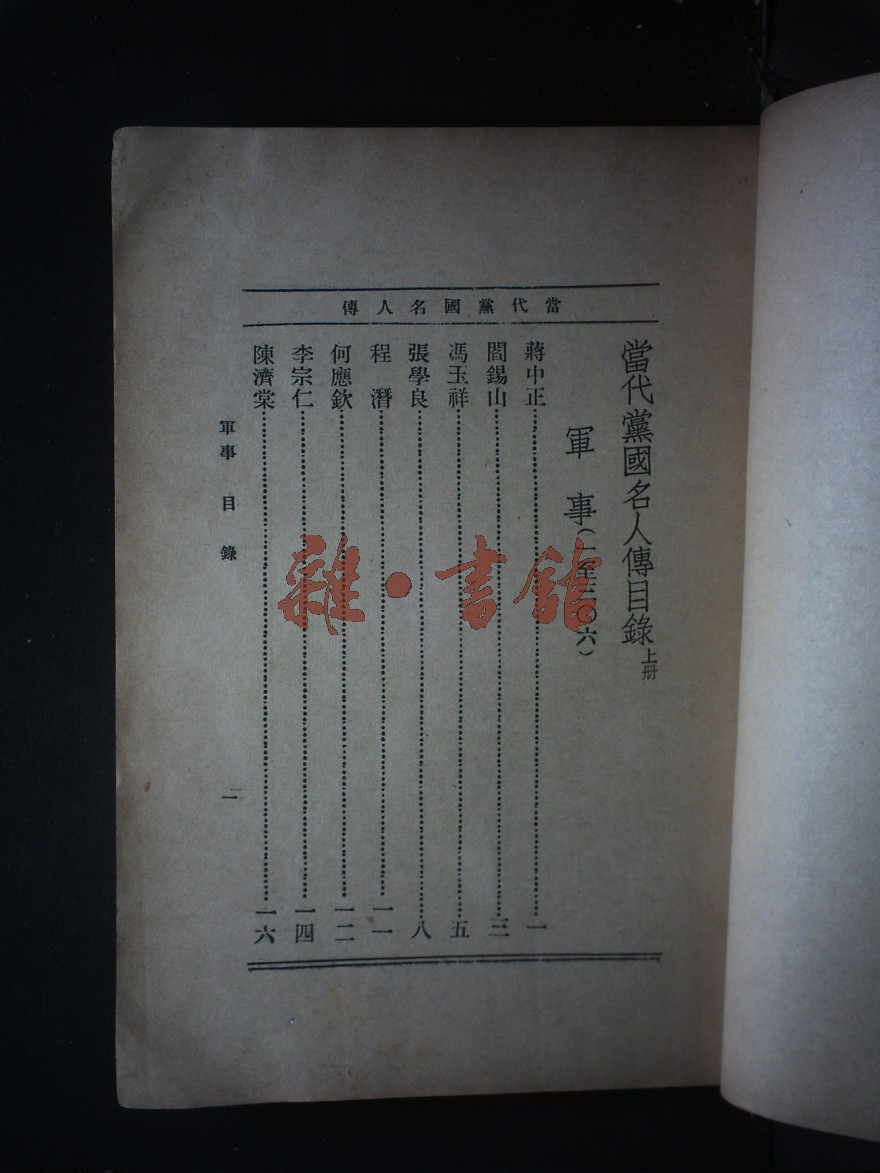 當代黨國名人傳
當代黨國名人傳目錄上册
軍事(一至二〇六)
蔣中正 一
閻錫山 三
馮玉祥 五
張學良 八
程潛 一一
何應欽 一二
李宗仁 一四
陳濟棠 一六
軍事 目錄
一
雜·書館